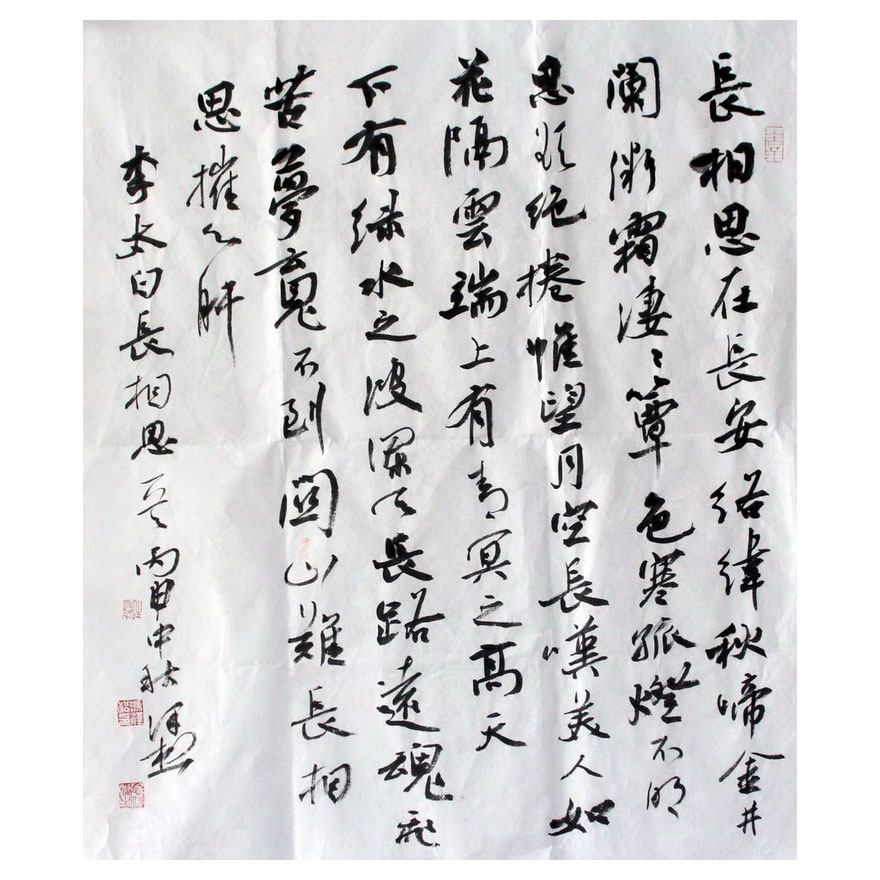 長相思在長安絡緯秋啼金井
闌微霜淒〻簟色寒孤燈不明
思欲絕捲帷望月空長嘆美人如
花隔雲端上有青冥之高天
下有绿水之波瀾天長路遠魂飛
苦夢魂不到關山難長相
思摧心肝
李太白長相思 丙申中秋